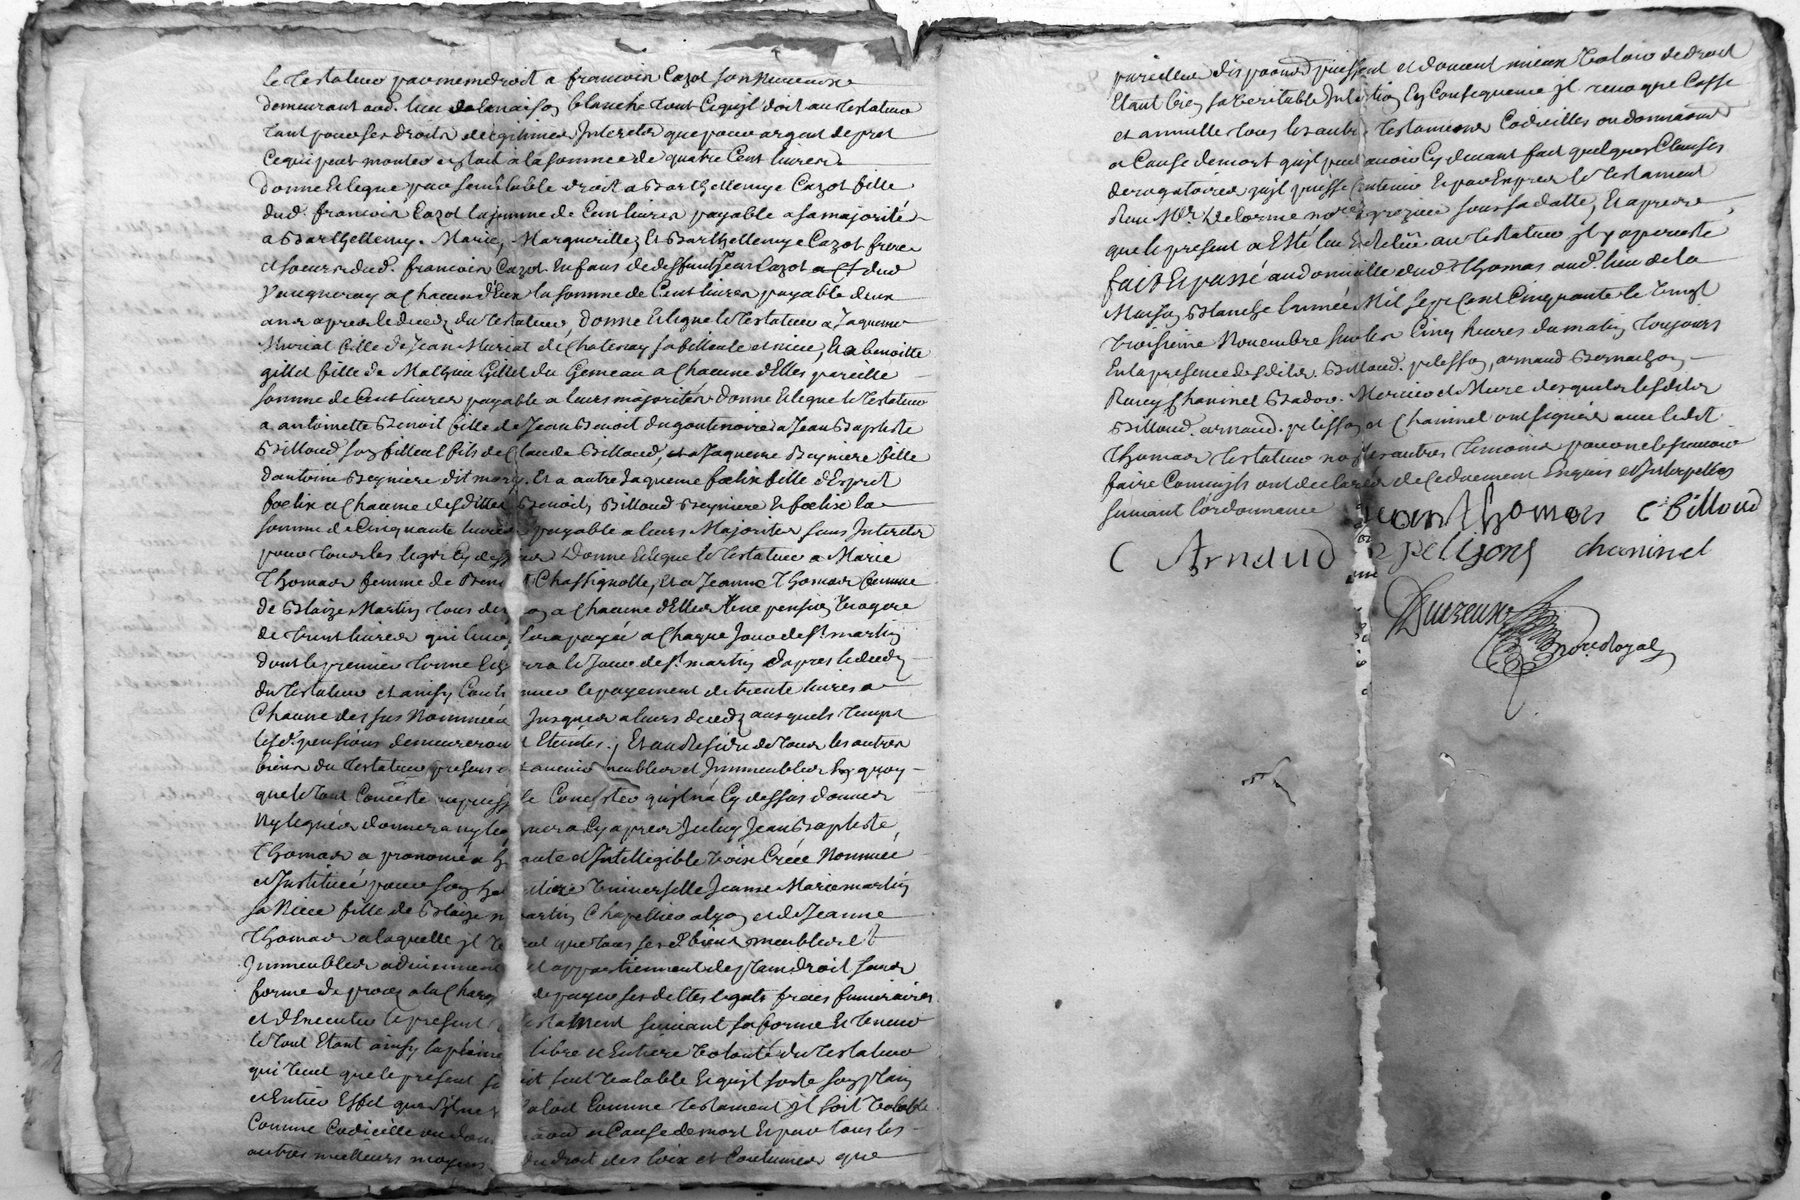 le Testateur par meme droit a francois Cazot son
demeurant aud. lieu de la maison blanche tout ce qu'jl doit au testateur
tant pour ses droits de legitimes Interets que pour argent de pret
ce qui peut monter a la somme de quatre Cent livres
donne Et legue par semblable droit a Barthellemye Cazot fille
dud. francois Cazot la somme de Cent livres payable a sa majorité
a Barthellemy. Marie, Margueritte, Et Barthellemye Cazot frere
et soeurs dud. francois Cazot Enfans de deffunt Jean Cazot
Vaugneray a Chacun d'Eux la somme de Cent livres payable deux
ans apres le deced du testateur, donne Et legue le testateur a Jaqueme
Muriat fille de Jean Muriat de Chatenay sa filleule et niece, Et a benoitte
gillet fille de Mathieu Gillet du Gemeau a Chacune d'Elles pareille
somme de Cent livres payable a leurs majorités donne Et legue le testateur
a antoinette Benoit fille de Jean Benoit du goutenoire a Jean Baptiste
Billoud son filleul fils de Claude Billoud, et a Jaqueme Beyniere fille
d'antoine Beyniere dit Et a autre Jaqueme foelix fille d'Esprit
foelix a Chacune desdittes Benoit, Billoud Beyniere Et foelix la
somme de Cinquante livres payable a leurs Majorites sans Interets
pour tous les legs Cy dessus Donne Et legue le testateur a Marie
Thomas femme de Chassignolle, Et a Jeanne Thomas femme
de Blaize Martin tous a Chacune d'Elles Une pension viagere
de trente livres qui sera payée a Chaque Jour de St. martin
dont le premier terme le Jour de St. martin d'apres le deced
du testateur et ainsy le payement de trente livres a
Chacune des sus Nommées Jusques a leurs deced auquels temps
lesd. pensions demeureront Eteintes; Et au Residu de tous les autres
biens du testateur presens et avenir meubles et Jmmeubles En quoy
que le tout Consiste ou puisse Consister qu'jl n'a Cy dessus donnés
ny legués donnera ny leguera Cy apres Jceluy Jean Baptiste
Thomas a prononcé a haute et Intelligible voix Créé Nommé
et Institué pour son heritiere Universelle Jeanne Marie martin
sa Niece fille de Blaize martin Chapellier a lyon et de Jeanne
Thomas a laquelle jl veut que tous ses biens meubles Et
Jmmeubles adviennent et appartiennent de plain droit sans
forme de procez a la Charge de payer ses dettes legats fraies funeraires
et d'Executer le present testament suivant sa forme Et teneur
le tout Etant ainsy la pleine libre et Entiere Volonté du testateur
qui veut que le present soit Valable Et qu'jl sorte son plain
et Entier Effet que s'jl ne Valoit Comme testament jl soit Valable
Comme Codicille ou donation a Cause de mort Et par tous les
autres meilleurs moyens du droit des loix et Coutumes que
pareilles dispositions puissent et doivent mieux valoir de droit
Etant bien sa veritable Intention En Consequence jl revoque Casse
et annulle tous les autres testamens Codicilles ou donnations
a Cause de mort qu'jl peut avoir Cy devant fait quelques Clauses
derogatoires qu'jl puisse Contenir Et par Expres le testament
Reçu Mtre Delorme nore a grezieu sous sa datte, Et apres
que le present a Esté lu Et Relu au testateur jl y a persisté
fait Et passé au domicille dud. Thomas aud. lieu de la
Maison Blanche l'année Mil sept Cent Cinquante le Vingt
troisieme Novembre sur les Cinq heures du matin toujours
En la presence desdits. Billoud. pelisson, arnaud Bernachon
Reney Chaninel Badou. Mercier et Mure desquels lesdits
Billoud. arnaud. pelisson et Chaninel ont signés avec ledit
Thomas testateur non les autres temoins pour ne le scavoir
faire Comm'jls ont declarés de Ce duement Enquis et Interpellés
suivant l'ordonnance jean thomas C billoud
C Arnaud pelisons chaninel
Dutreux
nore Royal